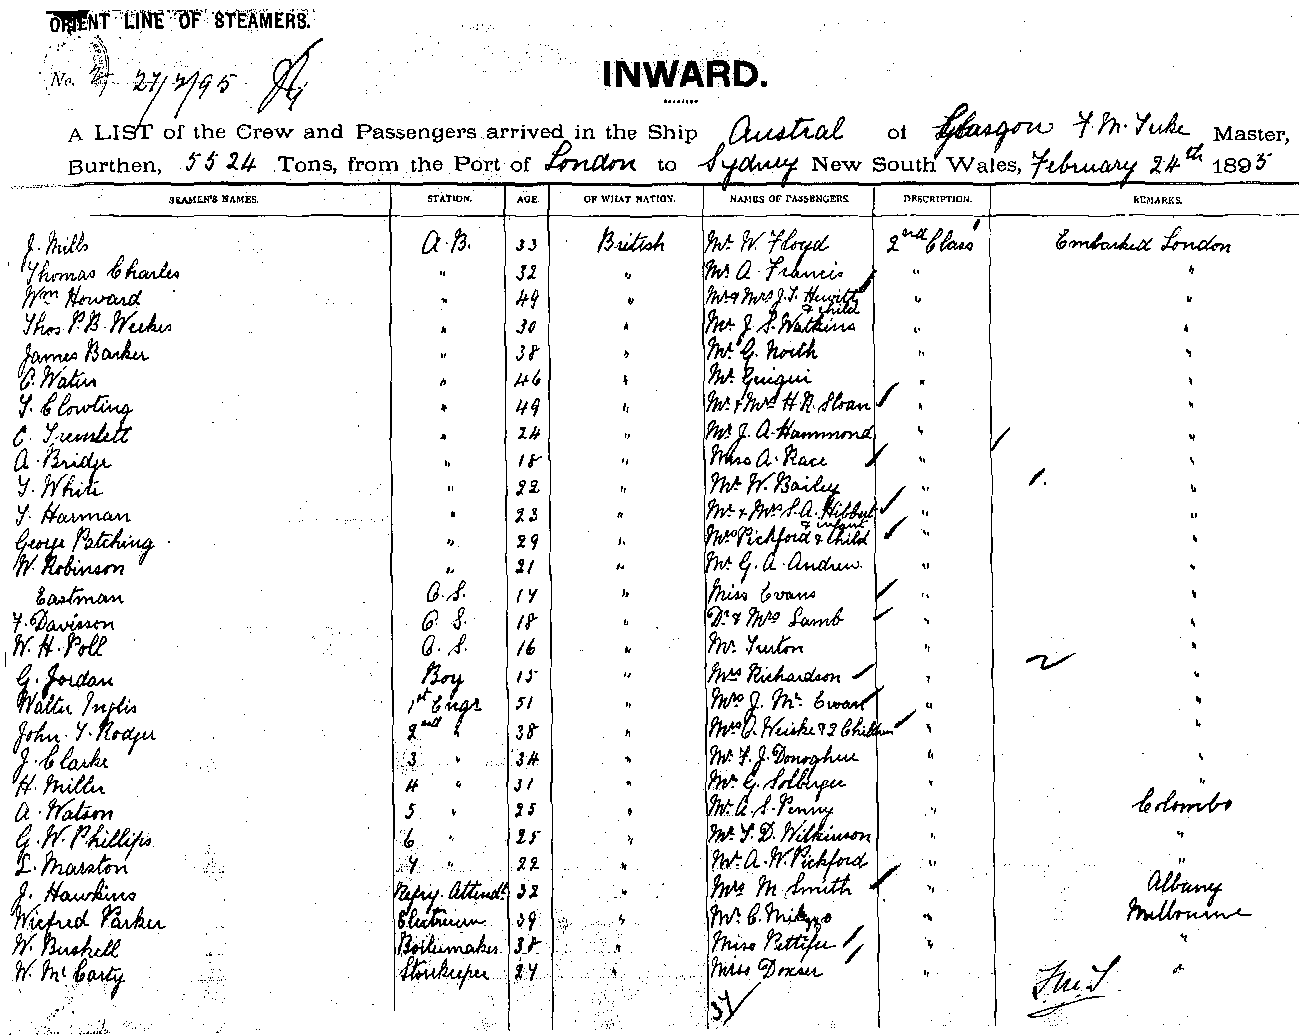 ORIENT LINE OF STEAMERS.
No. 27/2/95
INWARD.
A LIST of the Crew and Passengers arrived in the Ship Austral of Glasgow F. M. Tuke Master,
Burthen, 5524 Tons, from the Port of London to Sydney New South Wales, February 24th 1895
SEAMEN'S NAMES. STATION. AGE. OF WHAT NATION. NAMES OF PASSENGERS. DESCRIPTION. REMARKS.
J. Mills A.B. 33 British Mr W. Floyd 2nd Class Embarked London
Thomas Charles " 32 " Mr A. Francis " "
Wm Howard " 49 " Mr & Mrs J. T. Hewitt & child " "
Thos P. B. Weekes " 30 " Mr J. S. Watkins " "
James Barker " 38 " Mr G. North " "
C. Waters " 46 " Mr " "
T. Clowting " 49 " Mr & Mrs H. R. Sloan " "
C. Tremlett " 24 " Mr J. A. Hammond " "
A. Bridge " 18 " Miss A. Race " "
T. White " 22 " Mr W. Bailey " 1. "
T. Harman " 23 " Mr & Mrs S. A. Hibbert & infant " "
George Patching " 29 " Mrs Pickford & Child " "
W. Robinson " 21 " Mr G. A. Andrew " "
Eastman O.S. 17 " Miss Evans " "
F. Davisson O.S. 18 " Dr & Mrs Lamb " "
W. H. Poll O.S. 16 " Mr Turton " 2 "
G. Jordan Boy 15 " Mrs Richardson " "
Walter Inglis 1st Engr 51 " Mrs J. Mc Ewan " "
John T. Rodger 2nd " 38 " Mrs O. & 2 Children " "
J. Clarke 3 " 34 " Mr F. J. Donoghue " "
H. Miller 4 " 31 " Mr G. Solberger " "
A. Watson 5 " 25 " Mr A. S. Penny " Colombo
G. W. Phillips 6 " 25 " Mr T. D. Wilkinson " "
L. Marston 7 " 22 " Mr A. W. Pickford " "
J. Hawkins Refrg. Attendt 32 " Mrs M. Smith " Albany
Wilfred Parker Electrician 39 " Mr C. " Melbourne
W. Bushell Boilermaker 38 " Miss Pettifer " "
W. Mc Carty Storekeeper 27 " Miss " "
37